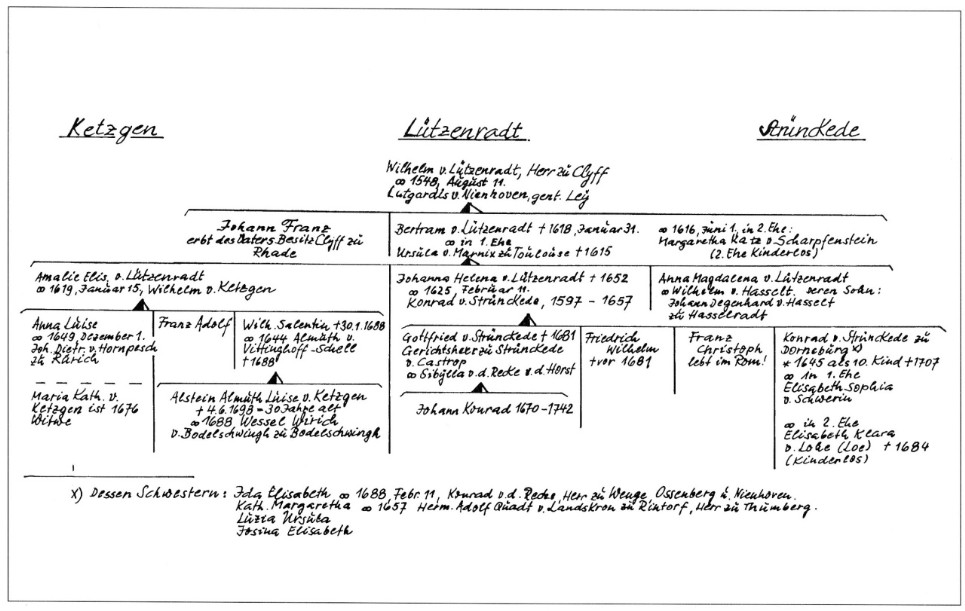 Ketzgen
Lützenradt
Strünckede
Wilhelm v. Lützenradt, Herr zu Clyff
∞ 1548, August 11.
Lutgardis v. Nienhoven, gent. Leij
Johann Franz
erbt des Vaters Besitz Clyff zu
Rhade
Bertram v. Lützenradt + 1618, Januar 31.
∞ in 1. Ehe
Ursula v. Marnix zu Toulouse + 1615
∞ 1616, Juni 1. in 2. Ehe:
Margaretha Katz v. Scharpfenstein
(2. Ehe Kinderlos)
Amalie Elis. v. Lützenradt
∞ 1619, Januar 15, Wilhelm v. Ketzgen
Johanna Helena v. Lützenradt + 1652
∞ 1625, Februar 11.
Konrad v. Strünckede, 1597 - 1657
Anna Magdalena v. Lützenradt
∞ Wilhelm v. Hasselt. deren Sohn:
Johann Degenhard v. Hasselt
zu Hasselradt
Anna Luise
∞ 1649, Dezember 1.
Joh. Dietr. v. Hornpesch
zu Rürich
Maria Kath. v.
Ketzgen ist 1676
Witwe
Franz Adolf
Wilh. Salentin + 30.1.1688
∞ 1644 Almuth v.
Vittinghoff-Schell
+ 1688
Alstein Almuth Luise v. Ketzgen
+ 4.6.1698 = 30 Jahre alt
∞ 1688, Wessel Wirich
v. Bodelschwingh zu Bodelschwingh
Gottfried v. Strünckede + 1681
Gerichtsherr zu Strünckede
v. Castrop
∞ Sibylla v. d. Recke v. d. Horst
Johann Konrad 1670-1742
Friedrich
Wilhelm
+ vor 1681
Franz
Christoph
lebt im Rom!
Konrad v. Strünckede zu
Dorneburg x)
* 1645 als 10. Kind + 1707
∞ in 1. Ehe
Elisabeth Sophia
v. Schwerin
∞ in 2. Ehe
Elisabeth Klara
v. Lohe (Loe) + 1684
(Kinderlos)
x) Dessen Schwestern: Ida Elisabeth ∞ 1688, Febr. 11, Konrad v. d. Recke, Herr zu Wenge, Ossenberg u. Nienhoven.
Kath. Margaretha ∞ 1657 Herm. Adolf Quadt v. Landskron zu Rintorf, Herr zu Thumberg.
Luzia Ursula
Josina Elisabeth